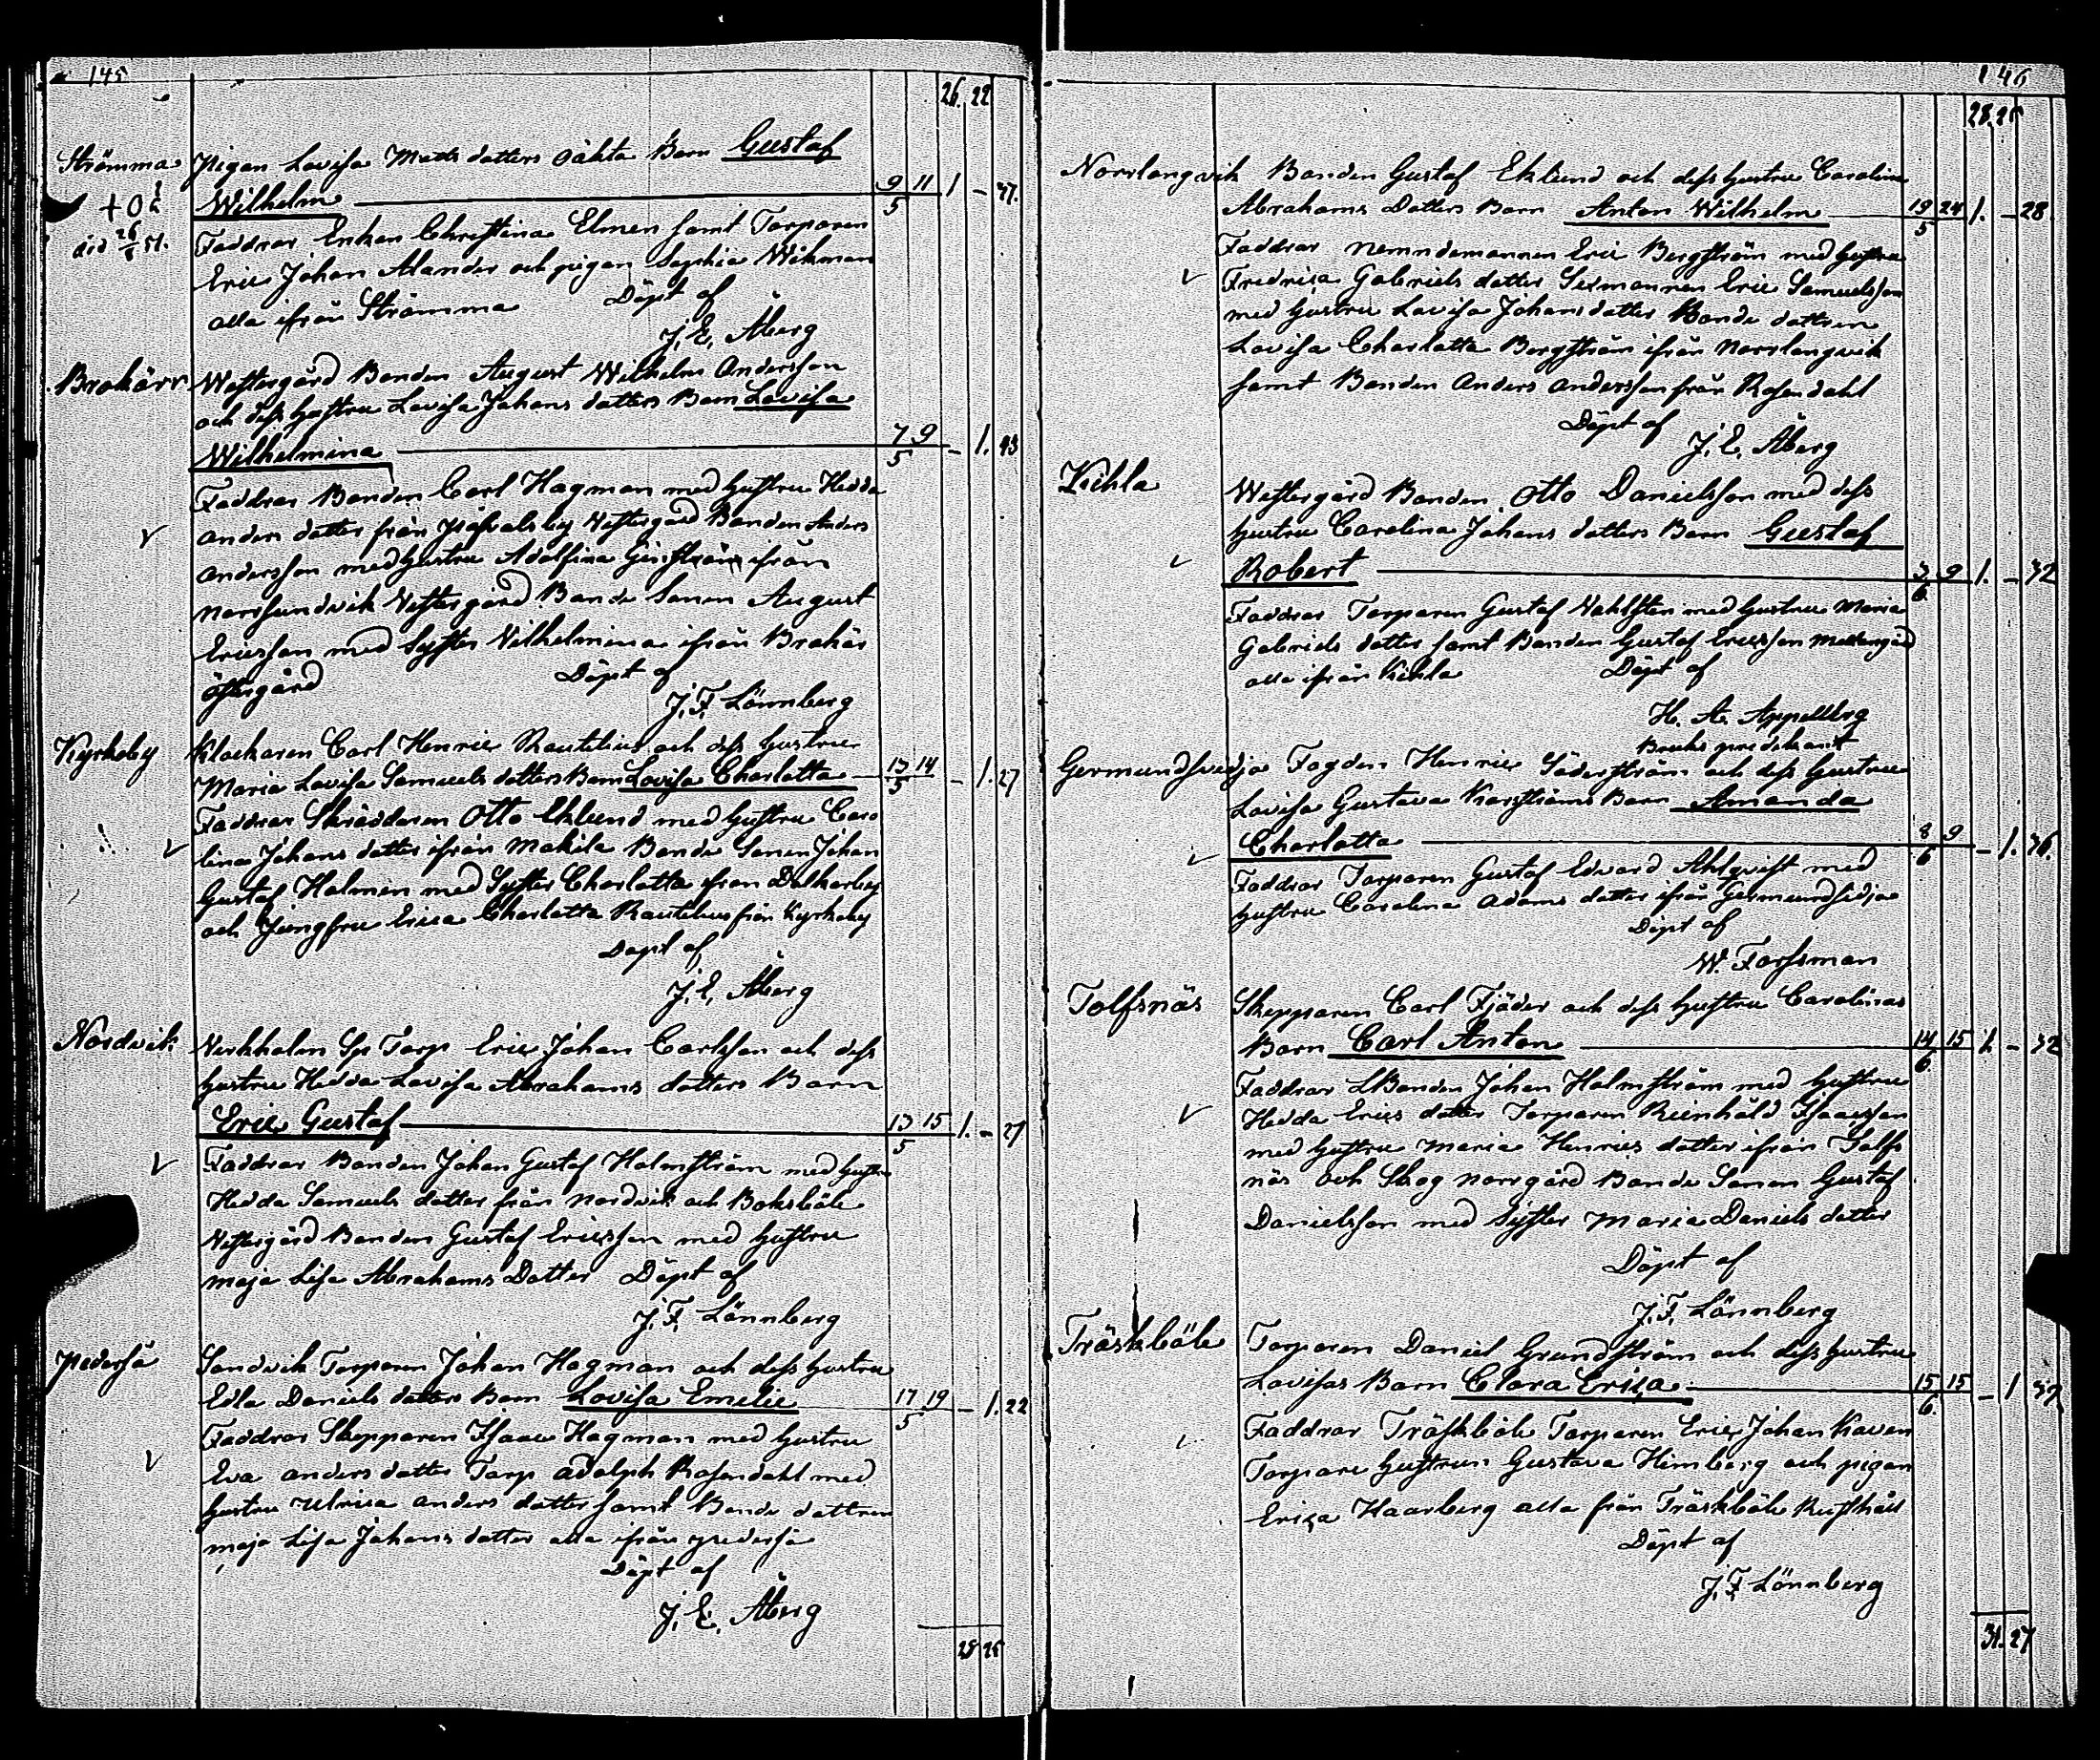 145
26. 22
Strömma Pigan Lovisa Matts dotters oäkta Barn Gustaf
Wilhelm 9/5 11 1 – 37.
Faddrar Enkan Christina Elmen samt Torparen
Eric Johan Alander och pigan Sophia Wikman
alla ifrån Strömma Döpt af
J. E. Åberg
Brokärr Westergård Bonden August Wilhelm Andersson
och dess Hustru Lovisa Johans dotters Barn Lovisa
Wilhelmina 7/5 9 – 1. 43
Faddrar Bonden Carl Hagman med Hustru Hedda
Anders dotter från Westergård Bonden Anders
Andersson med Hustru Adolfina ifrån
Norrsundvik Westergård Bonde Sonen August
Ericsson med Syster Wilhelmina ifrån Brokär
östergård Döpt af
J. F. Lönnberg
Kyrkoby Klockaren Carl Henric Rautelius och dess Hustru
Maria Lovisa Samuels dotters Barn Lovisa Charlotta 13/5 14 – 1. 27
Faddrar Skräddaren Otto Eklund med Hustru Caro
lina Johans dotter ifrån Makila Bonde Sonen Johan
Gustaf Holmen med Syster Charlotta ifrån Dalkarby
och Jungfru Erica Charlotta Rautelius från Kyrkoby
Döpt af
J. E. Åberg
Nordvik Verkholm Sp Torp Eric Johan Carlsson och dess
Hustru Hedda Lovisa Abrahams dotters Barn
Eric Gustaf 13/5 15 1. – 27
Faddrar Bonden Johan Gustaf Holmström med Hustru
Hedda Samuels dotter från Nordvik och Boksböle
Westergård Bonden Gustaf Ericsson med Hustru
Maja Lisa Abrahams Dotter Döpt af
J. F. Lönnberg
Pederså Sandvik Torparen Johan Hagman och dess Hustru
Edla Daniels dotters Barn Lovisa Emelie 17/5 19 – 1. 22
Faddrar Skepparen Isaac Hagman med Hustru
Eva Anders dotter Torp Adolph Rosendahl med
Hustru Ulrica Anders dotter samt Bonde dottren
Maja Lisa Johans dotter alla ifrån Pederså
Döpt af
J. E. Åberg
28 25
146
28. 25
Norrlangvik Bonden Gustaf Eklund och dess Hustru Carolina
Abrahams Dotters Barn Anton Wilhelm 19/5 24 1. – 28
Faddrar Nemndemannen Eric Bergström med Hustru
Fredrica Gabriels dotter Sexmannen Eric Samuelsson
med Hustru Lovisa Johans dotter Bonde dottren
Lovisa Charlotta Bergström ifrån Norrlangvik
samt Bonden Anders Andersson från Rosendahl
Döpt af
J. E. Åberg
Kihla Westergård Bonden Otto Danielsson med dess
Hustru Carolina Johans dotters Barn Gustaf
Robert 3/6 9 1. – 32
Faddrar Torparen Gustaf Wahlsten med Hustru Maria
Gabriels dotter samt Bonden Gustaf Ericsson Mellangård
alla ifrån Kihla Döpt af
H. A. Appelberg
Bruks predikant
Germundsvedja Fogden Henric Söderström och dess Hustru
Lovisa Gustava Karströms Barn Amanda
Charlotta 8/6 9 – 1. 36.
Faddrar Torparen Gustaf Edvard Ahlqvist med
Hustru Carolina Adams dotter ifrån Germundsvidja
Döpt af
W. Forssman
Tolfsnäs Skepparen Carl Fjäder och dess Hustru Carolinas
Barn Carl Anton 14/6 15 1. – 32
Faddrar LBonden Johan Holmström med Hustru
Hedda Erics dotter Torparen Reinhåld Isaacsson
med Hustru Maria Henrics dotter ifrån Tolfs
näs och Skog Norrgård Bonde Sonen Gustaf
Danielsson med Syster Maria Daniels dotter
Döpt af
J. F. Lönnberg
Träskböle Torparen Daniel Grundström och dess Hustru
Lovisas Barn Clara Erica 15/6 15 – 1 32
Faddrar Träskböle Torparen Eric Johan Kaven
Torpare Hustrun Gustava Himberg och pigan
Erica Haarberg alla från Träskböle Rusthåll
Döpt af
J. F. Lönnberg
31. 27